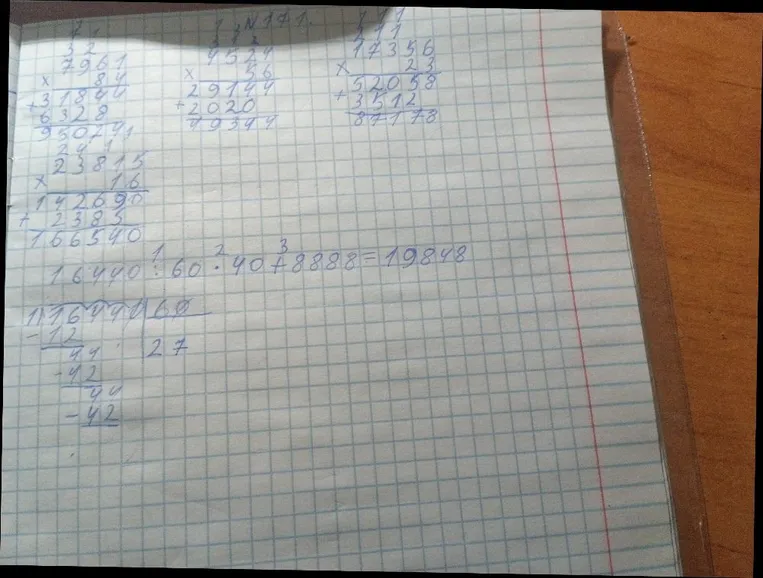 N 171.
1 1
3 2
7961
× 84
31844
+
6328
950241
1 2
4524
× 56
29144
+
2020
49344
1 1
2 1 1
17356
× 23
52058
+
3512
87178
2 4 1 1
23815
× 16
142690
+
2385
166540
1 2 3
16440 : 60 · 40 + 8888 = 19848
1) 16440 60
- 12
27
44
- 42
44
- 42